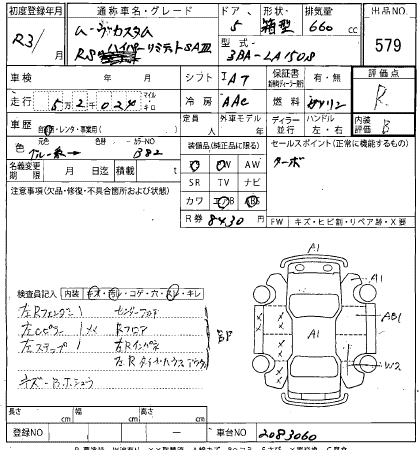 初度登録年月 通称車名・グレード ドア 形状 排気量 出品NO.
R3/ ムーヴカスタム 5 箱型 660 cc
RS ハイパーリミテッドSAⅢ 型式 3BA-LA150S 579
車検 年 月 シフト IAT 保証書 有・無 評価点
走行 5万2千024 マイル キロ 冷房 AAC 燃料 ガソリン R
車歴 自家・レンタ・事業用( ) 定員 人 外車モデル 年 ディーラー 並行 ハンドル 左・右 内装評価 B
色 元色 色替 カラーNO B82 装備品(純正品に限る) セールスポイント(正常に機能するもの)
名義変更期限 月 日迄 積載 t PS PW AW ターボ
注意事項(欠品・修復・不具合箇所および状態) SR TV ナビ
カワ エアB ABS
R券 8430 円 FW キズ・ヒビ割・リペア跡・X要
A1
検査員記入 内装 キオ・汚レ・コゲ・穴・スレ・キレ
左Rフェンダー センターフロア
左Cピラー Rフロア
左ステップ 左Rインパネ
左Rタイヤハウス
キズ
A1
AB1
A1
W2
A1
長さ cm 幅 cm 高さ cm
登録NO ー 車台NO 2083060